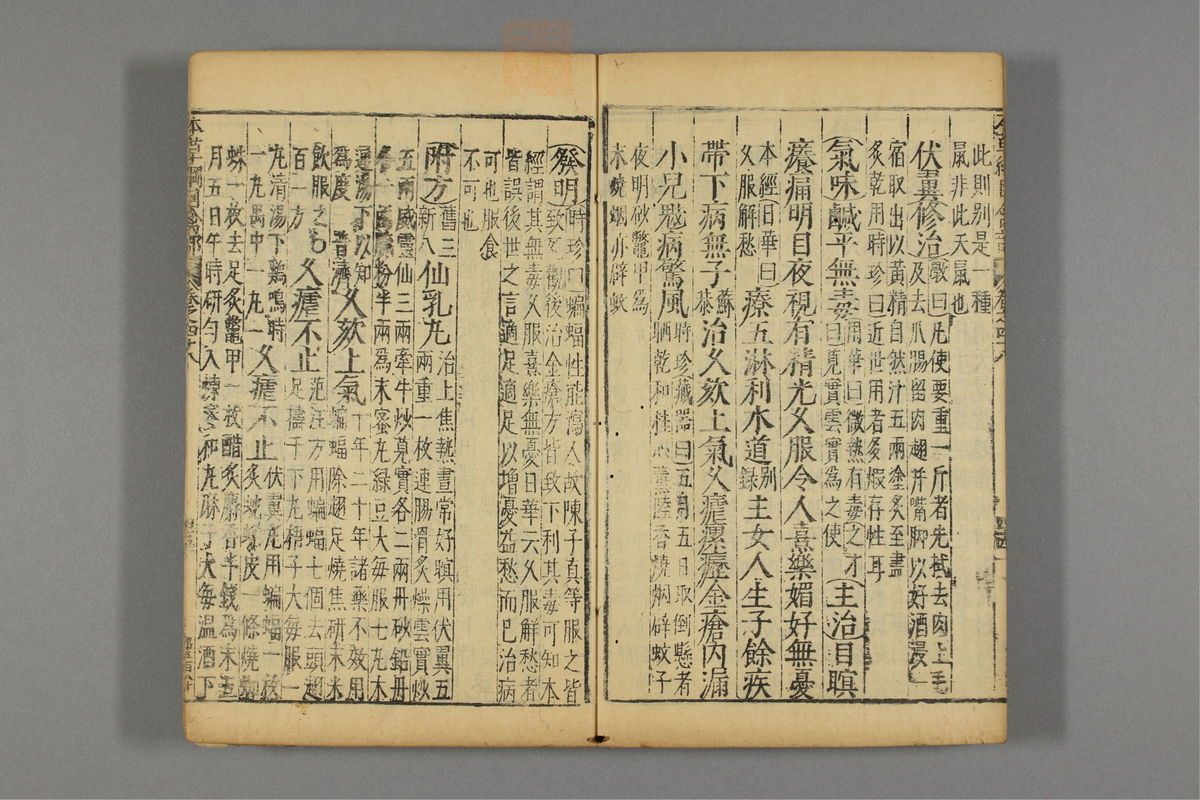 此則別是一種
鼠非此天鼠也
伏翼修治 斅曰凡使要重一斤者先拭去肉上毛
及去爪腸留肉翅并嘴脚以好酒浸一
宿取出以黃精自然汁五兩塗炙至盡
炙乾用時珍曰近世用者多煅存性耳
氣味鹹平無毒 日華曰微熱有毒之才
曰莧實雲實為之使 主治目瞑
癢痛明目夜視有精光久服令人熹樂媚好無憂
本經日華曰
久服解愁 療五淋利水道 別錄 主女人生子餘疾
帶下病無子 蘇恭 治久欬上氣久瘧瘰癧金瘡内漏
小兒鬾病驚風 時珍藏器曰五月五日取倒懸者
晒乾和桂心薰陸香燒烟辟蚊子
夜明砂鱉甲為
末燒烟亦辟蚊
發明 時珍曰蝙蝠性能瀉人故陳子真等服之皆
致死觀後治金瘡方皆致下利其毒可知本
經謂其無毒久服熹樂無憂日華云久服解愁者
皆誤後世之言適足適足以增憂益愁而已治病
可也服食
不可也
附方 舊三
新八 仙乳丸 治上焦熱晝常好瞑用伏翼五
兩重一枚連腸胃炙燥雲實炒
五兩威靈仙三兩牽牛炒莧實各二兩丹砂鉛丹
各一兩膩粉半兩為末蜜丸綠豆大每服七丸木
通湯下以知
為度 普濟 久欬上氣 十年二十年諸藥不效用
蝙蝠除翅足燒焦研末米
飲服之
百一方 久瘧不止 范汪方用蝙蝠七個去頭翅
足搗千下丸梧子大每服一
丸清湯下鷄鳴時
一丸禺中一丸 久瘧不止 伏翼丸用蝙蝠一枚
炙蛇蛻皮一條燒蜘
蛛一枚去足炙鱉甲一枚醋炙麝香半錢為末五
月五日午時研勻入煉蜜和丸麻子大每溫酒下